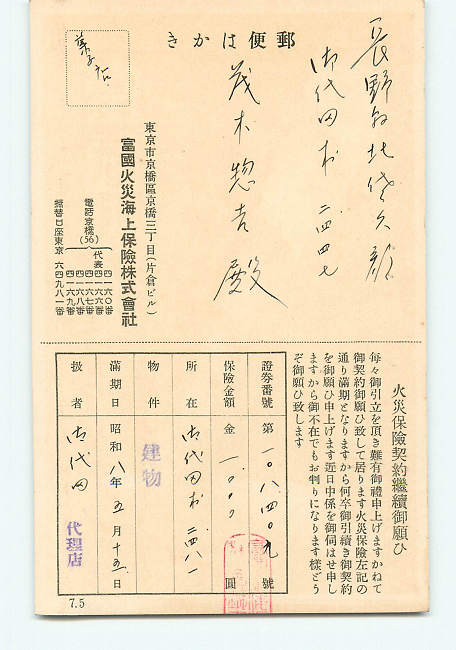 郵便はかき
長野縣北佐久郡
御代田村 二四四七
茂木惣吉殿
東京市京橋區京橋三丁目(片倉ビル)
富國火災海上保險株式會社
電話京橋(56)
代表
四一六〇番
四一六六番
四一六七番
四一六八番
四一六九番
振替口座東京 六四九八一番
火災保險契約繼續御願ひ
每々御引立を頂き難有御禮申上げますかねて
御契約御願ひ致して居ります火災保險左記の
通り滿期となりますから何卒御引續き御契約
を御願ひ申上げます近日中係を御伺はせ申し
ますから御不在でもお判りになります樣どう
ぞ御願ひ致します
證券番號 第一〇八四〇九號
保險金額 金一〇〇〇圓
所在 御代田村二四八一
物件 建物
滿期日 昭和八年五月十五日
扱者 御代田 代理店
7.5